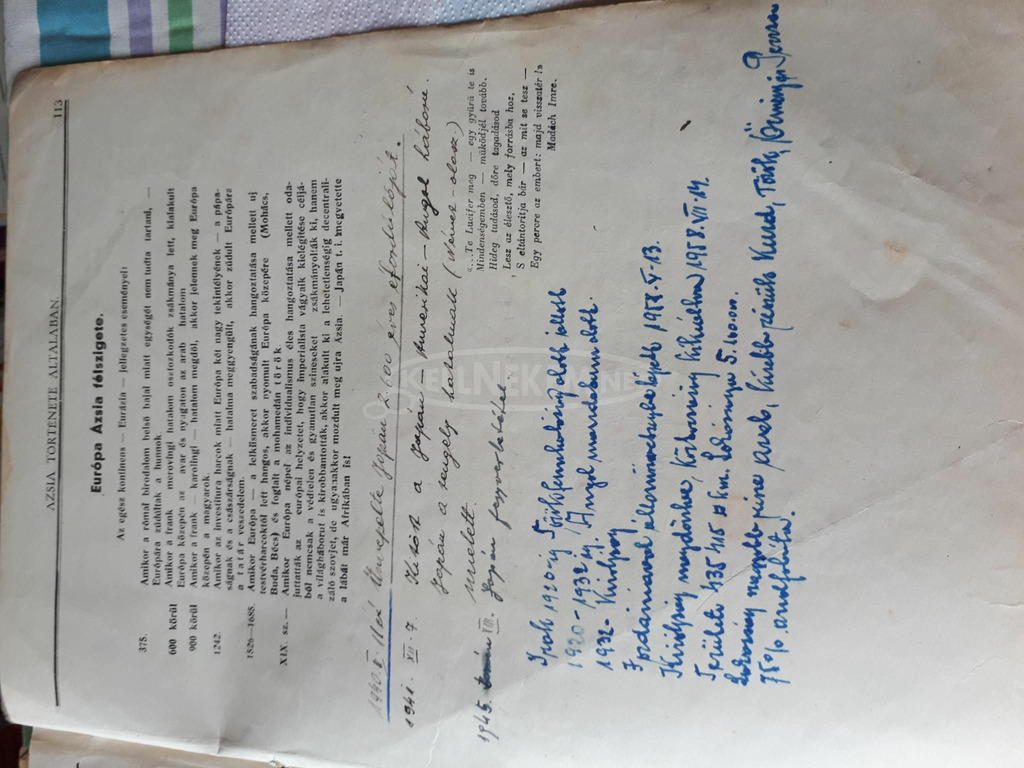 AZSIA TÖRTENETE ALTALABAN.
113
Európa Ázsia félszigete.
Az egész kontinens — Eurázia — jellegzetes eseményei:
375. Amikor a római birodalom belső bajai miatt egységét nem tudta tartani, —
Európára zúdúltak a hunnok.
600 körül Amikor a frank merovingi hatalom osztozkodók zsákmánya lett, kialakult
Európa közepén az avar és nyugaton az arab hatalom
900 körül Amikor a frank — karolingi — hatalom megdől, akkor jelennek meg Európa
közepén a magyarok.
1242. Amikor az investitura harcok miatt Európa két nagy tekintélyének — a pápa-
ságnak és a császárságnak — hatalma meggyengült, akkor zúdult Európára
a tatár veszedelem.
1526—1688. Amikor Európa — a lelkiismeret szabadságának hangoztatása mellett uj
testvérharcoktól lett hangos, akkor nyomul Európa közepére (Mohács,
Buda, Bécs) és foglalt a mohamedán török
XIX. sz. — Amikor Európa népei az individualismus éles hangoztatása mellett oda-
juttatták az európai helyzetet, hogy imperialista vágyaik kielégitése céljá-
ból nemcsak a védtelen és gyanutlan szineseket zsákmányolták ki, hanem
a világháborut is kirobbantották, akkor alakult ki a lehetetlenségig decentrali-
záló szovjet, de ugyanakkor mozdult meg ujra Ázsia. — Japán t. i. megvetette
a lábát már Afrikában is!
Ünnepelte Japán 2.600 éves évfordulóját.
1941. XII. 7. Kitört a Japán — Amerikai — Angol háború.
Japán a tengely hatalmak (Német-olasz)
mellett.
1945. VIII. Japán fegyverletétel
„...Te Lucifer meg — egy gyürü te is
Mindenségemben — müködjél tovább.
Hideg tudásod, dőre tagadásod
Lesz az élesztő, mely forrásba hoz,
S eltántoritja bár — az mit se tesz —
Egy percre az embert: majd visszatér !«
Madách Imre.
KELLNEK
Irak 1920-ig Török fennhatóság alatt állott
1920-1932-ig Angol mandatum alatt.
1932- Királyság
Jordániával államszövetségre lépett 1958.
Királyság megdöntése, Köztársaság kikiáltása 1958. VII. 14.
Területe 435.415 □ km. Lakossága 5.100.000.
Lakosság nagyobb része arab, kisebb részük Kurd, Török, Örmény és Perzsa